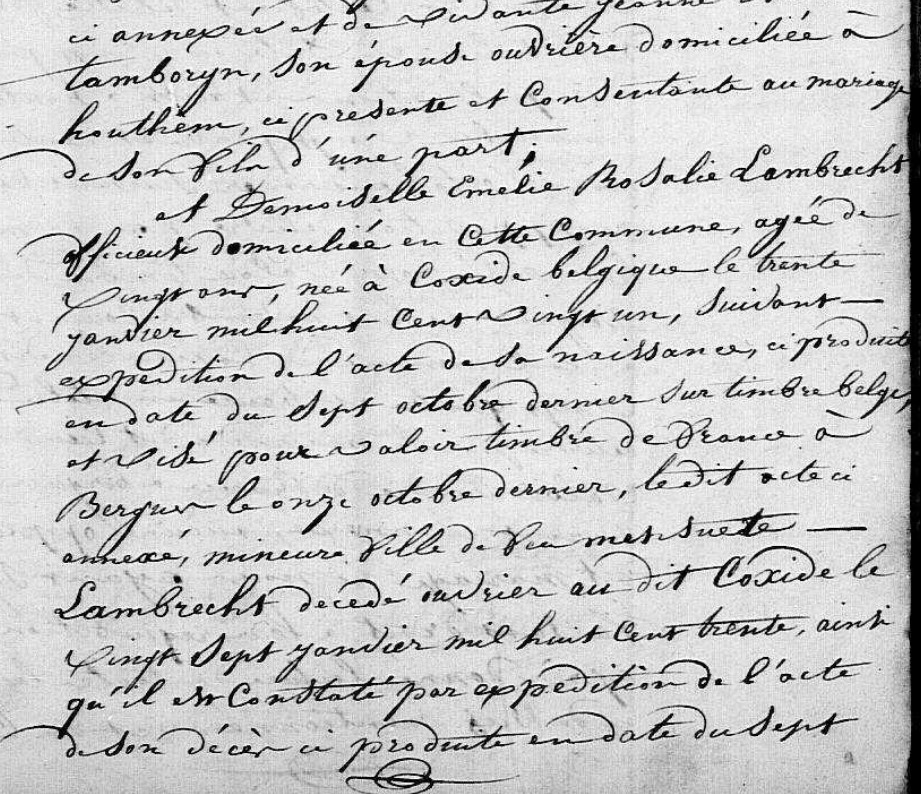 ci annexée et de vivante jeanne
tamboryn, son épouse ouvrière domiciliée à
houthem, ci présente et Consentante au mariage
de son fils d'une part;
et Demoiselle Emélie Rosalie Lambrecht
domiciliée en cette Commune, agée de
vingt ans, née à Coxide belgique le trente
janvier mil huit Cent vingt un, suivant —
expédition de l'acte de sa naissance, ci produite
en date du sept octobre dernier sur timbre belge,
et visé pour valoir timbre de france à
Bergues le onze octobre dernier, le dit acte ci
annexé, mineure fille de feu mensuete —
Lambrecht decedé ouvrier au dit Coxide le
vingt sept janvier mil huit Cent trente, ainsi
qu'il est Constaté par expedition de l'acte
de son décès ci produite en date du sept